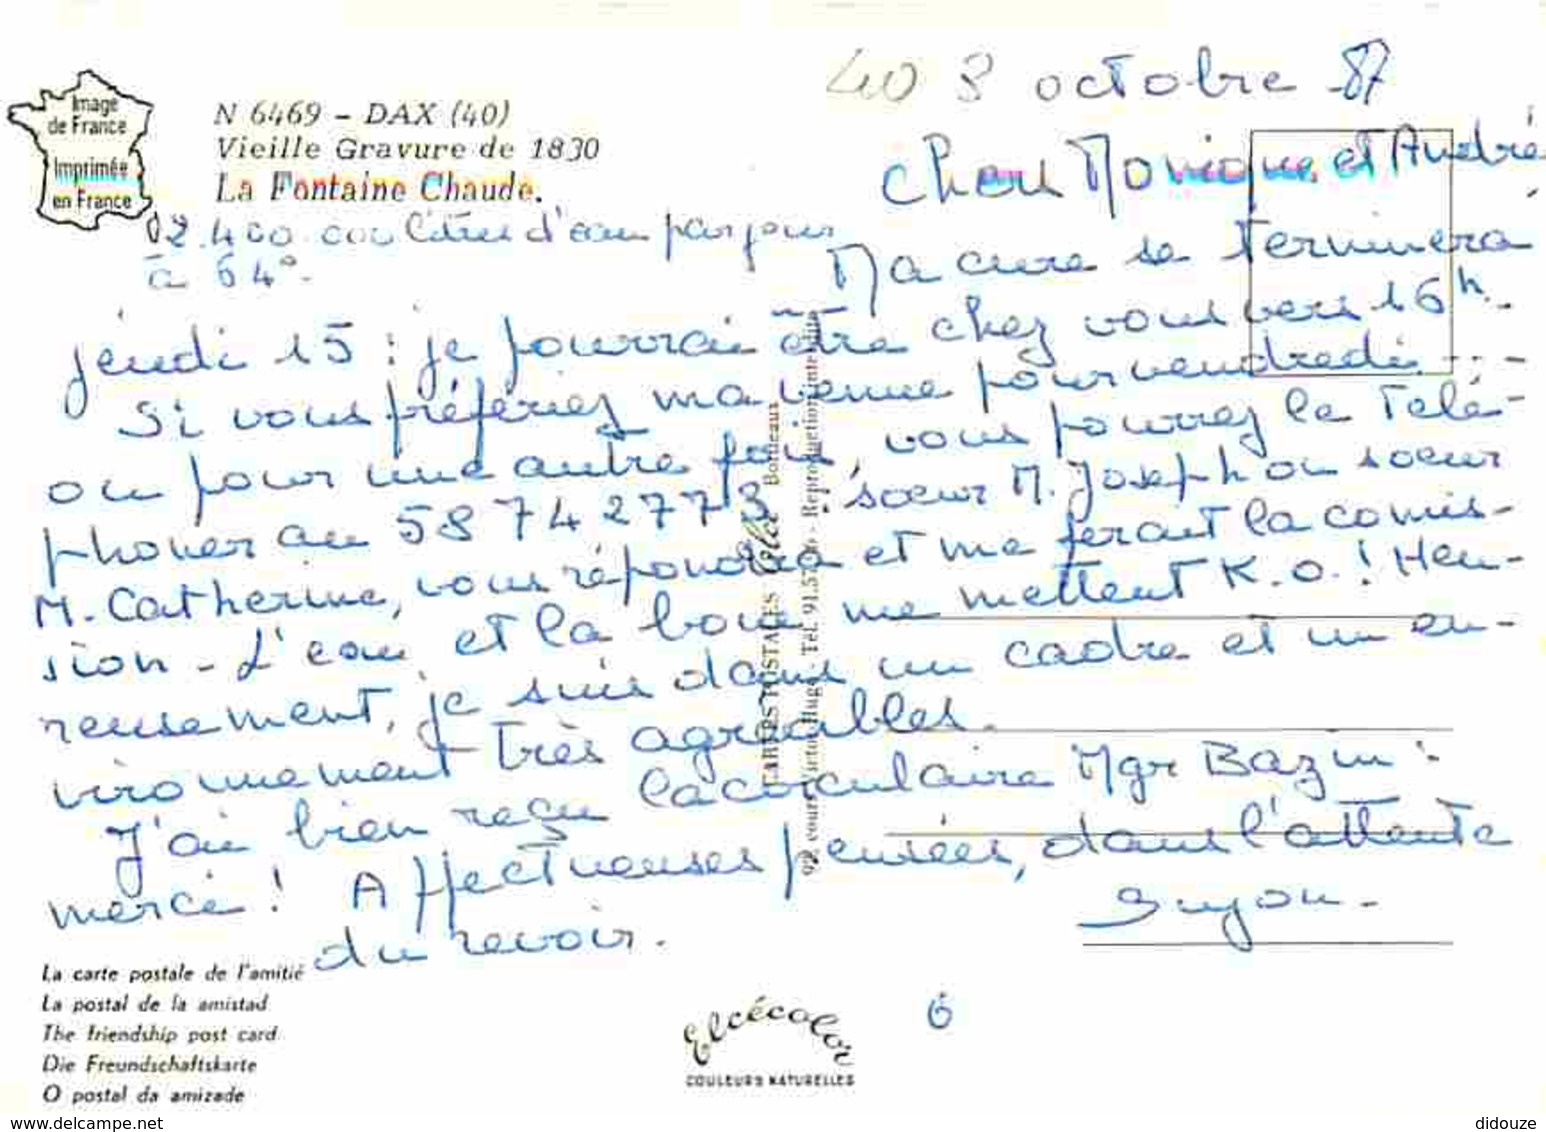 40 8 octobre 87
Image
de France
Imprimée
en France
N 6469 - DAX (40)
Vieille Gravure de 1830
La Fontaine Chaude.
2.400.000 litres d'eau par jour
à 64°.
Chers Monique et André
Ma cure se terminera
jeudi 15 : je pourrai être chez vous vers 16h.
Si vous préfériez ma venue pour vendredi...
ou pour une autre fois, vous pourrez le télé-
phoner au 58 74 27 73 : soeur M. Joseph ou soeur
M. Catherine, vous répondra et me ferait la comis-
sion - L'eau et la boue me mettent K.O.! Heu-
reusement, je suis dans un cadre et un en-
vironnement très agréables.
J'ai bien reçu la circulaire Mgr Bazin :
merci ! Affectueuses pensées, dans l'attente
du revoir.
Suzon -
CARTES POSTALES Elcé Bordeaux
92, cours Victor Hugo - Tél. 91.57 - Reproduction interdite
La carte postale de l'amitié
La postal de la amistad
The friendship post card
Die Freundschaftskarte
O postal da amizade
Elcécolor
COULEURS NATURELLES
6
www.delcampe.net
didouze